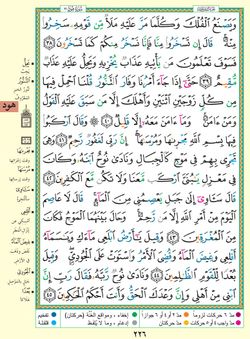 وَيَصْنَعُ ٱلْفُلْكَ وَكُلَّمَا مَرَّ عَلَيْهِ مَلَأٌ مِّن قَوْمِهِۦ سَخِرُوا۟
مِنْهُ ۚ قَالَ إِن تَسْخَرُوا۟ مِنَّا فَإِنَّا نَسْخَرُ مِنكُمْ كَمَا تَسْخَرُونَ ٣٨
فَسَوْفَ تَعْلَمُونَ مَن يَأْتِيهِ عَذَابٌ يُخْزِيهِ وَيَحِلُّ عَلَيْهِ عَذَابٌ
مُّقِيمٌ ٣٩ حَتَّىٰٓ إِذَا جَآءَ أَمْرُنَا وَفَارَ ٱلتَّنُّورُ قُلْنَا ٱحْمِلْ فِيهَا
مِن كُلٍّ زَوْجَيْنِ ٱثْنَيْنِ وَأَهْلَكَ إِلَّا مَن سَبَقَ عَلَيْهِ ٱلْقَوْلُ
وَمَنْ ءَامَنَ ۚ وَمَآ ءَامَنَ مَعَهُۥٓ إِلَّا قَلِيلٌ ٤٠ ۞ وَقَالَ ٱرْكَبُوا۟
فِيهَا بِسْمِ ٱللَّهِ مَجْر۪ىٰهَا وَمُرْسَىٰهَآ ۚ إِنَّ رَبِّى لَغَفُورٌ رَّحِيمٌ ٤١ وَهِىَ
تَجْرِى بِهِمْ فِى مَوْجٍ كَٱلْجِبَالِ وَنَادَىٰ نُوحٌ ٱبْنَهُۥ وَكَانَ
فِى مَعْزِلٍ يَـٰبُنَىَّ ٱرْكَب مَّعَنَا وَلَا تَكُن مَّعَ ٱلْكَـٰفِرِينَ ٤٢
قَالَ سَـَٔاوِىٓ إِلَىٰ جَبَلٍ يَعْصِمُنِى مِنَ ٱلْمَآءِ ۚ قَالَ لَا عَاصِمَ
ٱلْيَوْمَ مِنْ أَمْرِ ٱللَّهِ إِلَّا مَن رَّحِمَ ۚ وَحَالَ بَيْنَهُمَا ٱلْمَوْجُ فَكَانَ
مِنَ ٱلْمُغْرَقِينَ ٤٣ وَقِيلَ يَـٰٓأَرْضُ ٱبْلَعِى مَآءَكِ وَيَـٰسَمَآءُ
أَقْلِعِى وَغِيضَ ٱلْمَآءُ وَقُضِىَ ٱلْأَمْرُ وَٱسْتَوَتْ عَلَى ٱلْجُودِىِّ ۖ وَقِيلَ
بُعْدًا لِّلْقَوْمِ ٱلظَّـٰلِمِينَ ٤٤ وَنَادَىٰ نُوحٌ رَّبَّهُۥ فَقَالَ رَبِّ إِنَّ
ٱبْنِى مِنْ أَهْلِى وَإِنَّ وَعْدَكَ ٱلْحَقُّ وَأَنتَ أَحْكَمُ ٱلْحَـٰكِمِينَ ٤٥
هود
٢٢٦